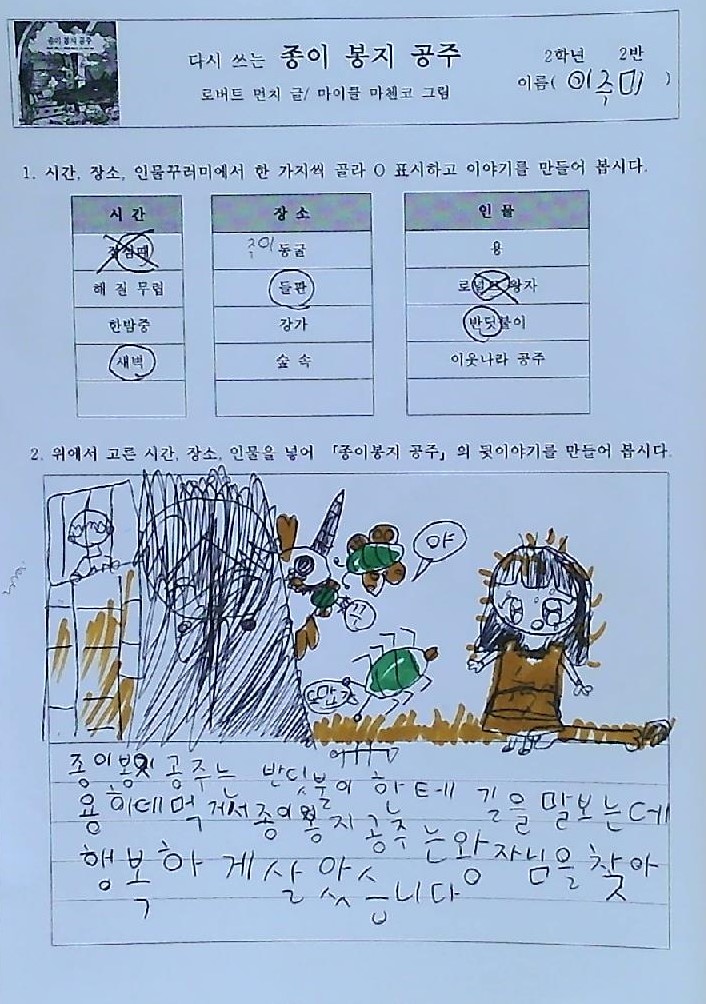 종이 봉지 공주
다시 쓰는 종이 봉지 공주
2학년 2반
로버트 먼치 글/ 마이클 마첸코 그림
이름( 이주미 )
1. 시간, 장소, 인물꾸러미에서 한 가지씩 골라 O 표시하고 이야기를 만들어 봅시다.
시 간 장 소 인 물
점심때 동굴 용
해 질 무렵 들판 로널드 왕자
한밤중 강가 반딧불이
새벽 숲 속 이웃나라 공주
2. 위에서 고른 시간, 장소, 인물을 넣어 「종이봉지 공주」의 뒷이야기를 만들어 봅시다.
야
종이봉지 공주는 반딧불이 하테 길을 말보는데
용히데먹 게서 종이봉지 공주는왕자님을 찾아
행복하게살았습니다